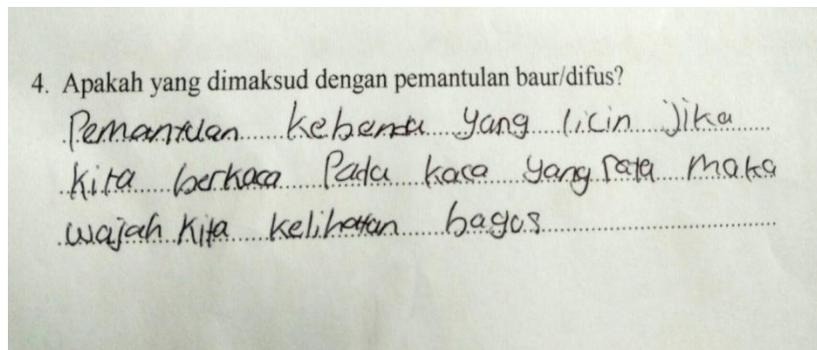 4. Apakah yang dimaksud dengan pemantulan baur/difus?
Pemantulan kebenda yang licin jika
kita berkaca pada kaca yang rata maka
wajah kita kelihatan bagus